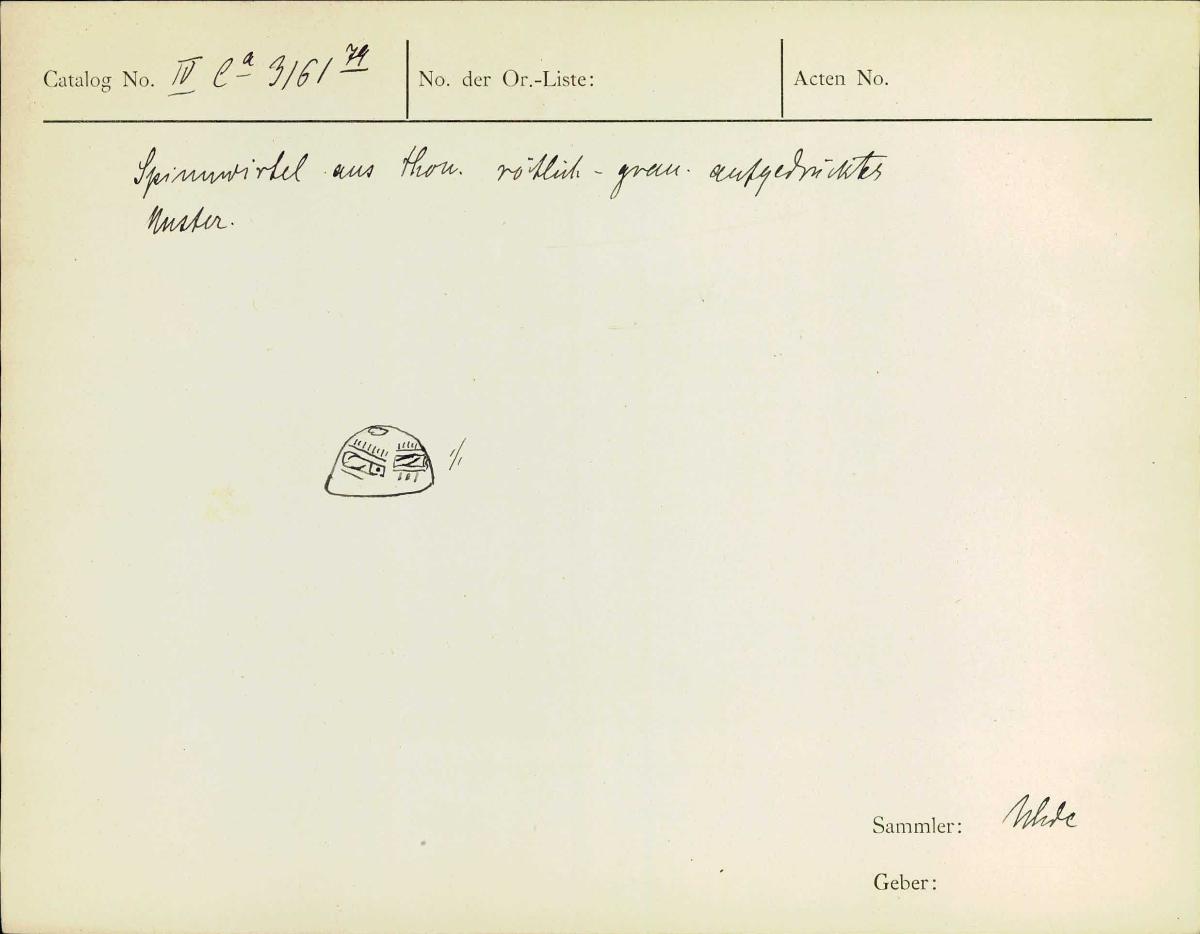 Catalog No. IV Ca 3161 74 No. der Or.-Liste: Acten No.
Spinnwirtel aus Thon. rötlich-grau. aufgedrücktes
Muster.
1/1
Sammler: Uhde
Geber: